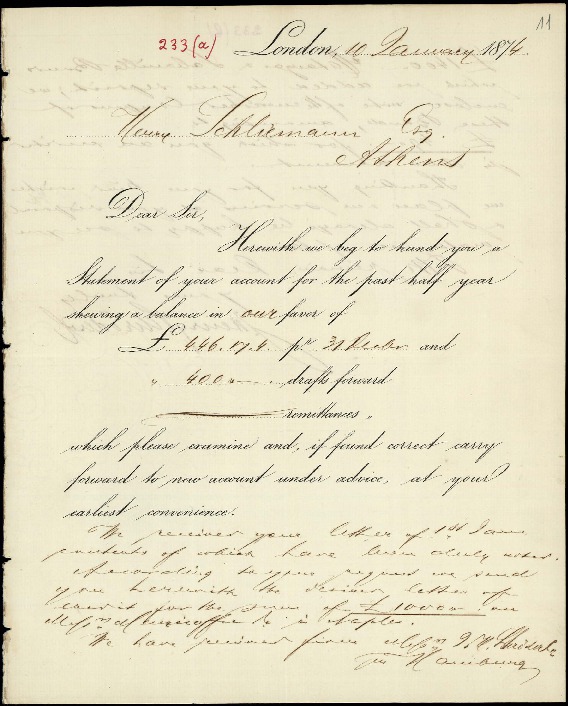 11
233(a)
London, 10 January 1874.
Henry Schliemann Esq.
Athens
Dear Sir,
Herewith we beg to hand you a
Statement of your account for the past half year
shewing a balance in our favor of
£ 446.17.4. pr 31 Decbr and
" 400 drafts forward
remittances "
which please examine and, if found correct carry
forward to new account under advice, at your
earliest convenience.
We received your letter of 1st Jan
contents of which have been duly noted.
According to your request we send
you herewith the desired letter of
credit for the sum of £1000 on
Messrs & Co in Naples.
We have received from Messrs J. H. Schröder & Co
in Hamburg